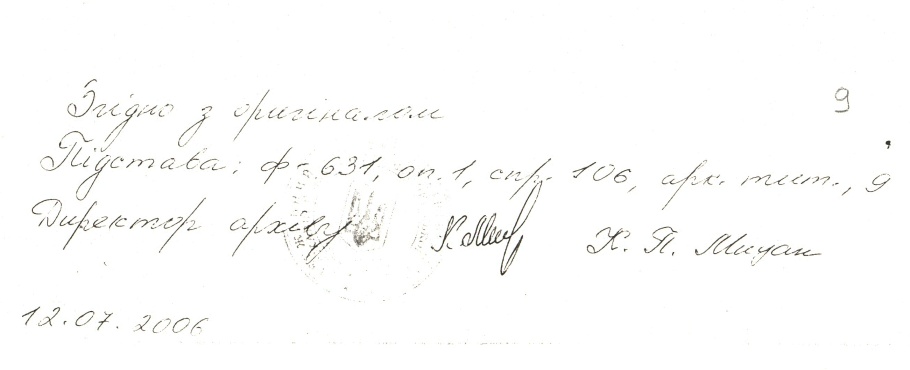 9
Згідно з оригіналом
Підстава: ф-631, оп. 1, спр. 106, арк. тит., 9
Директор архіву К. П. Мицан
12.07.2006